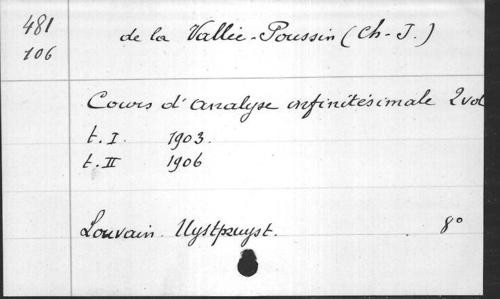 481
106
de la Vallée-Poussin (Ch-J.)
Cours d'analyse infinitésimale 2 vol
t. I. 1903.
t. II 1906
Louvain. Uystpruyst. 8°